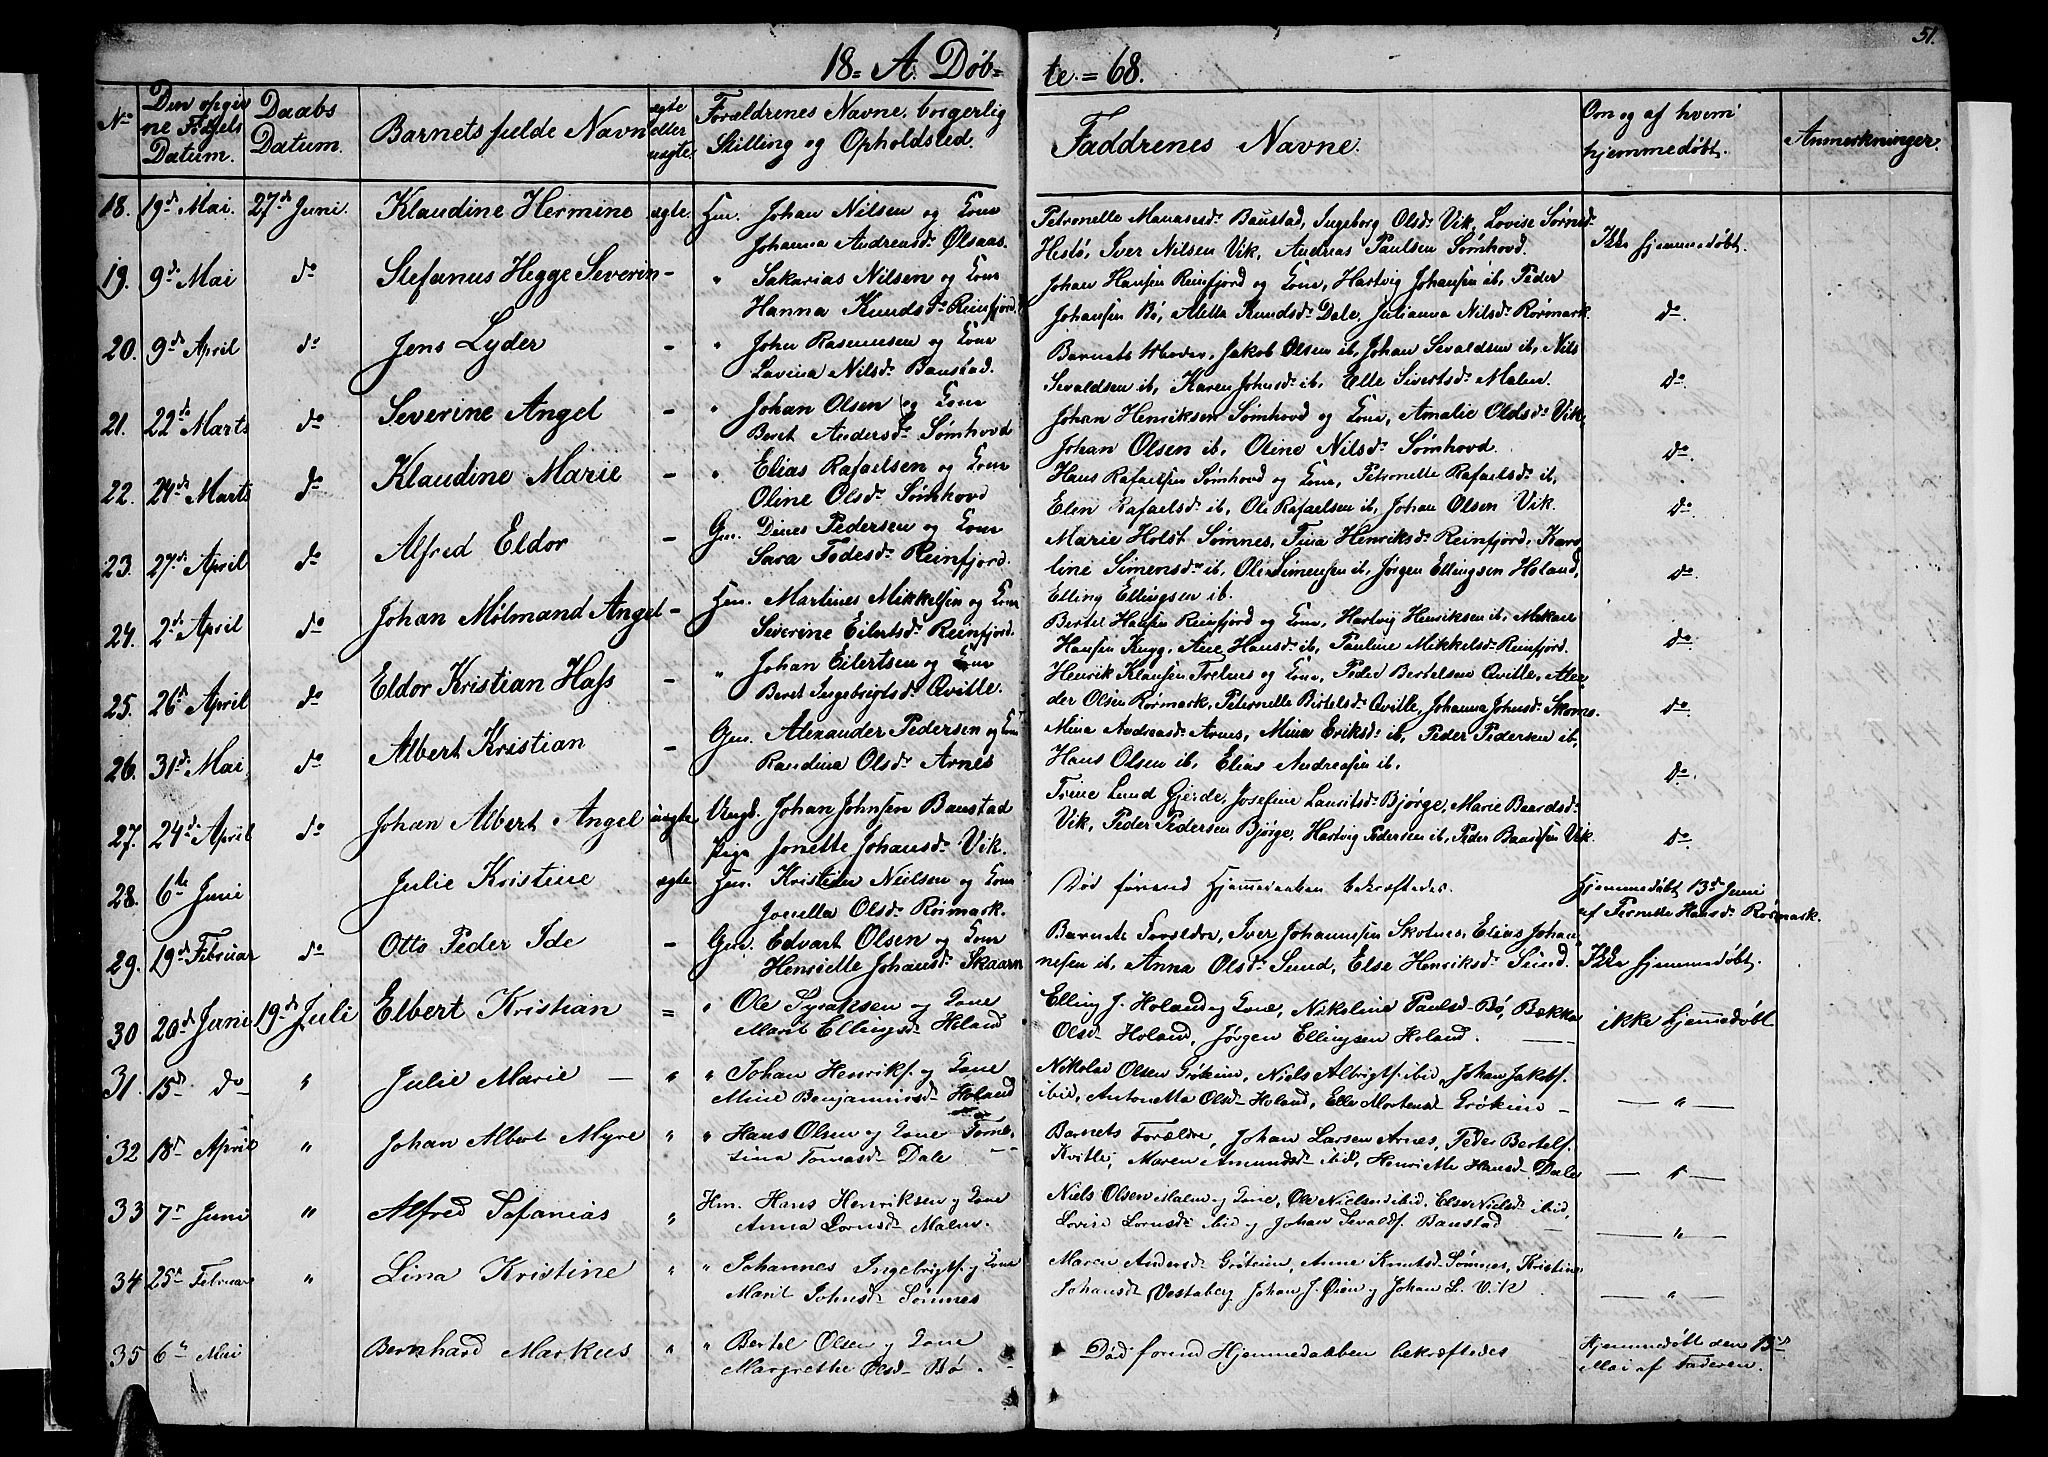 51.
18 = A. Døb = te = 68.
No
Den opgiv
ne Fødsels
Datum.
Daabs
Datum.
Barnets fulde Navn
ægte
eller
uægte.
Forældrenes Navne, borgerlig
Stilling og Opholdsted.
Faddrenes Navne.
Om og af hvem
hjemmedøbt.
Anmerkninger.
18. 19d Mai. 27d Juni. Klaudine Hermine ægte. Hm. Johan Nilsen og Kone
Johanna Andreasd. Olsaas.
Petronelle Manasesd. Baustad, Ingeborg Olsd. Vik, Lovise Sørnsd.
Hestø, Iver Nilsen Vik, Andreas Paulsen Sømhovd. Ikke hjemmedøbt.
19. 9d Mai do Stefanus Hegge Severin - " Sakarias Nilsen og Kone
Hanna Knudsd. Reinfjord.
Johan Hansen Reinfjord og Kone, Hartvig Johansen ib, Peder
Johansen Bø, Aletta Knudsd. Dale, Julianna Nilsd. Rørmark. do.
20. 9d April do Jens Lyder - " John Rasmusen og Kone
Lavina Nilsd. Baustad.
Barnets Moder, Jakob Olsen ib, Johan Sevaldsen ib, Nils
Sevaldsen ib, Karen Johnsd. ib, Elle Sivertsd. Malm. do.
21. 22d Marts do Severine Angel - " Johan Olsen og Kone
Beret Andersd. Sømhovd
Johan Henriksen Sømhovd og Kone, Amalie Olsd. Vik,
Johan Olsen ib, Oline Nilsd. Sømhovd. do.
22. 24d Marts do Klaudine Marie - " Elias Rafaelsen og Kone
Oline Olsd. Sømhovd
Hans Rafaelsen Sømhovd og Kone, Petronelle Rafaelsd. ib,
Elen Rafaelsd. ib, Ole Rafaelsen ib, Johan Olsen Vik. do
23. 27d April do Alfred Eldor - Gm. Dines Pedersen og Kone
Sara Todesd. Reinfjord.
Marie Holst Sømnes, Tina Henriksd. Reinfjord, Karo
line Simensd. ib, Ole Simensen ib, Jørgen Ellingsen Holand, do
Elling Ellingsen ib.
24. 2d April do Johan Mølmand Angel - Hm. Martines Mikkelsen og Kone
Severine Eilertsd. Reinfjord.
Bertel Hansen Reinfjord og Kone, Hartvig Henriksen ib,
Hansen Kugg, Ane Hansd. ib, Pauline Mikkelsd. Reinfjord. do
25. 26d April do Eldor Kristian Hass - " Johan Eilertsen og Kone
Beret Ingebrigtsd. Qville.
Henrik Klausen Trelnes og Kone, Peder Bertelsen Qville,
der Olsen Rørmark, Peternelle Birtelsd. Qville, Johanna Johnsd. Skovns. do.
26. 31d Mai do Albert Kristian - Gm. Alexander Pedersen og Kone
Randina Olsd. Arnes
Mina Andreasd. Arnes, Mina Eriksd. ib, Peder Pedersen ib,
Hans Olsen ib, Elias Andreasen ib. do.
27. 24d April do Johan Albert Angel uægte Ungd. Johan Johnsen Baustad
Pige Jonette Johansd. Vik.
Trine Lund Gjerde, Josefine Lauritsd. Bjørge, Marie Baardsd.
Vik, Peder Pedersen Bjørge, Hartvig Pedersen ib, Peder Baardsen Vik. do
28. 6te Juni Julie Kristine ægte Hm. Kristian Nielsen og Kone
Jonella Olsd. Rørmark.
Død førend Hjemmedaaben bekræftedes. Hjemmedøbt 13d Juni
af Pernelle Hansd. Rørmark.
29. 19d Februar do Otto Peder Ide - Gm. Edvart Olsen og Kone
Henriette Johansd. Skaarn
Barnets Forældre, Iver Johannesen Skotnes, Elias Johan
nesen ib, Anna Olsd. Sund, Else Henriksd. Sund. Ikke hjemmedøbt.
30 20d Juni 19d Juli Elbert Kristian = " Ole Syraksen og Kone
Marit Ellingsd. Holand
Elling J. Holand og Kone, Nikoline Paulsd. Bø, Bække
Olsd. Holand, Jørgen Ellingsen Holand. ikke hjemmedøbt
31. 15d do " Julie Marie " " Johan Henriks. og Kone
Mine Benjaminsd. Holand
Nikolai Olsen Grøteim, Niels Albrigts. ibid, Johan Jakobs.
ibid, Antonetta Olsd. Holand, Elle Mortensd. Grøteim - "
32 18d April " Johan Albert Myre " " Hans Olsen og Kone Torne-
sina Tomasd. Dale
Barnets Forældre, Johan Larsen Arnes, Peder Bertels.
Kvitle, Maren Amundsd. ibid, Henriette Hansd. Dale "
33 7d Juni " Alfred Safanias " Hm. Hans Henriksen og Kone
Anna Lornsd. Malm.
Niels Olsen Malm og Kone, Ole Nielsen ibid, Else Nielsd. ibid,
Lovise Lornsd. ibid og Johan Sevalds. Baustad "
34 25d Februar " Lina Kristine " " Johannes Ingebrigts. og Kone
Marit Johnsd. Sømnes
Maren Andersd. Grøteim, Anne Knutsd. Sømnes, Kristine
Johansd. Vestaberg, Johan J. Øien og Johan L. Vik "
35 6te Mai Bernhard Markus " " Bertel Olsen og Kone
Margrethe Olsd. Bø.
Død forend Hjemmedaaben bekræftedes Hjemmedøbt den 13de
Mai af Faderen.